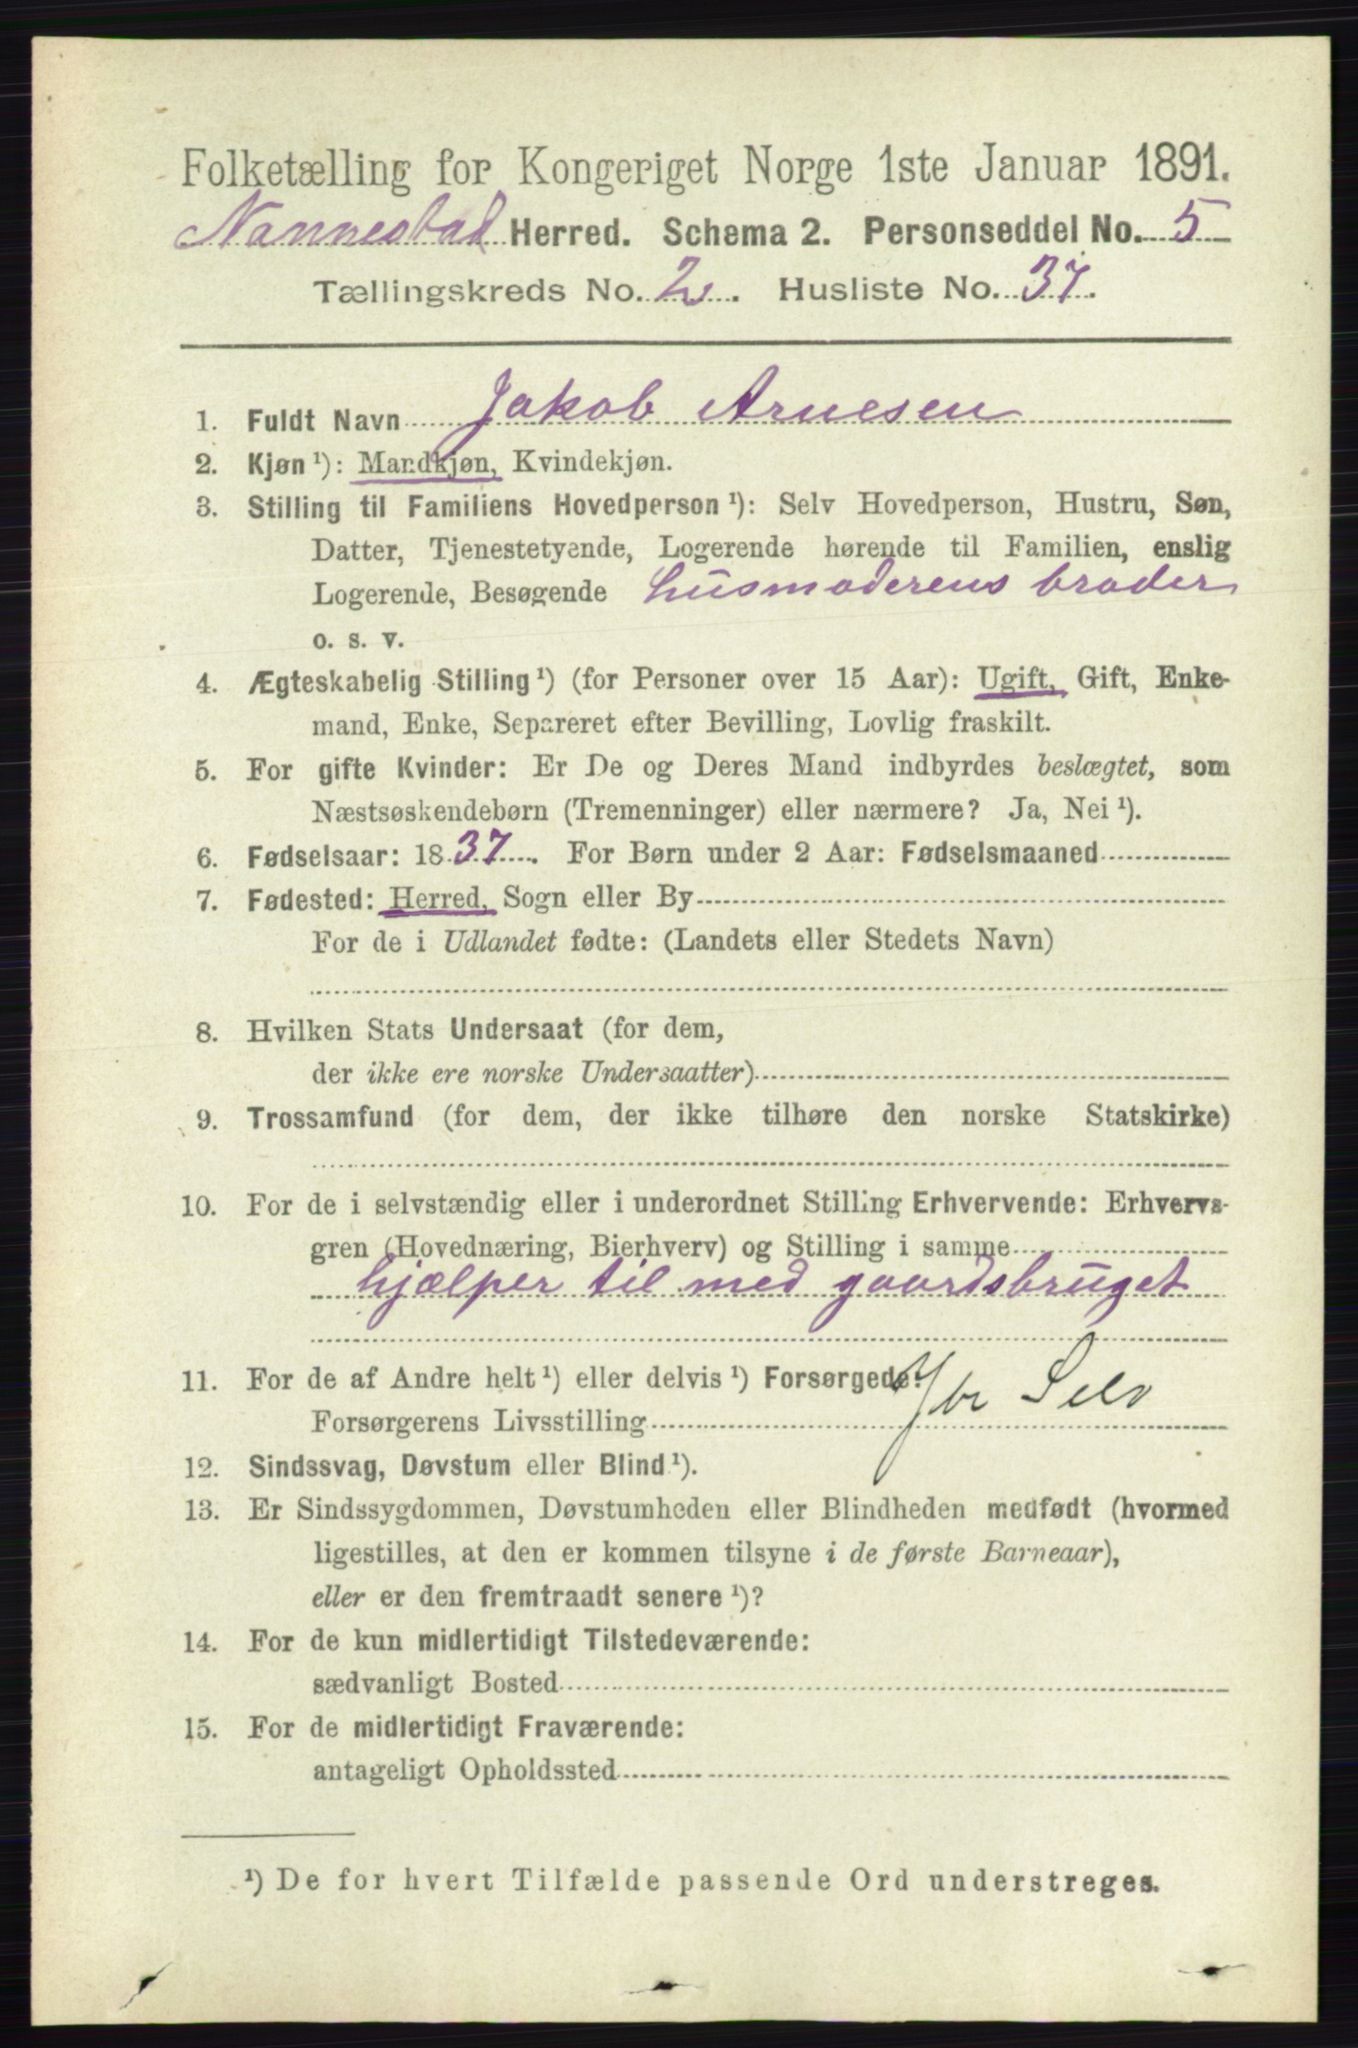 Folketælling for Kongeriget Norge 1ste Januar 1891.
Nannestad Herred. Schema 2. Personseddel No. 5
Tællingskreds No. 2. Husliste No. 37.
1. Fuldt Navn Jakob Arnesen
2. Kjøn ¹): Mandkjøn, Kvindekjøn.
3. Stilling til Familiens Hovedperson ¹): Selv Hovedperson, Hustru, Søn,
Datter, Tjenestetyende, Logerende hørende til Familien, enslig
Logerende, Besøgende husmoderens broder
o. s. v.
4. Ægteskabelig Stilling ¹) (for Personer over 15 Aar): Ugift, Gift, Enke-
mand, Enke, Separeret efter Bevilling, Lovlig fraskilt.
5. For gifte Kvinder: Er De og Deres Mand indbyrdes beslægtet, som
Næstsøskendebørn (Tremenninger) eller nærmere? Ja, Nei ¹).
6. Fødselsaar: 1837. For Børn under 2 Aar: Fødselsmaaned
7. Fødested: Herred, Sogn eller By
For de i Udlandet fødte: (Landets eller Stedets Navn)
8. Hvilken Stats Undersaat (for dem,
der ikke ere norske Undersaatter)
9. Trossamfund (for dem, der ikke tilhøre den norske Statskirke)
10. For de i selvstændig eller i underordnet Stilling Erhvervende: Erhvervs-
gren (Hovednæring, Bierhverv) og Stilling i samme
hjælper til med gaardsbruget
11. For de af Andre helt ¹) eller delvis ¹) Forsørgede:
Forsørgerens Livsstilling Selv
12. Sindssvag, Døvstum eller Blind ¹).
13. Er Sindssygdommen, Døvstumheden eller Blindheden medfødt (hvormed
ligestilles, at den er kommen tilsyne i de første Barneaar),
eller er den fremtraadt senere ¹)?
14. For de kun midlertidigt Tilstedeværende:
sædvanligt Bosted
15. For de midlertidigt Fraværende:
antageligt Opholdssted
¹) De for hvert Tilfælde passende Ord understreges.